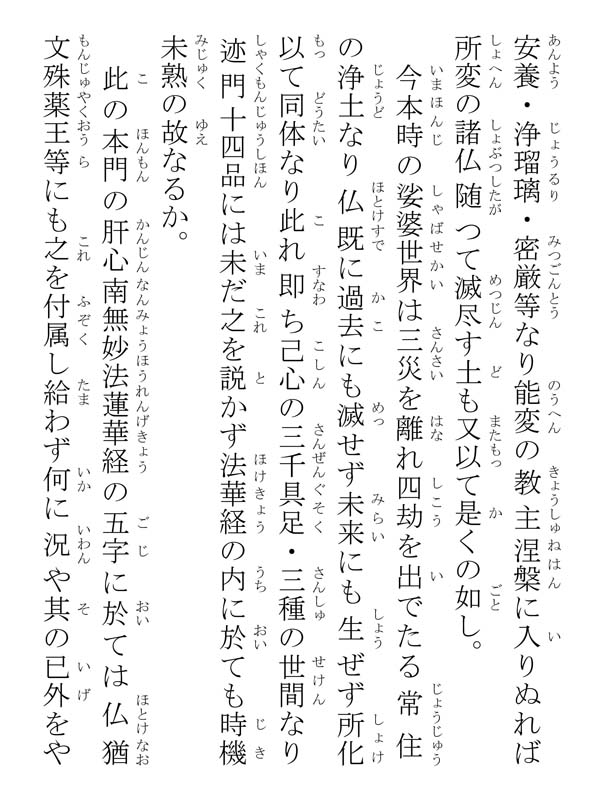 安養・浄瑠璃・密厳等なり能変の教主涅槃に入りぬれば
所変の諸仏随つて滅尽す土も又以て是くの如し。
今本時の娑婆世界は三災を離れ四劫を出でたる常住
の浄土なり仏既に過去にも滅せず未来にも生ぜず所化
以て同体なり此れ即ち己心の三千具足・三種の世間なり
迹門十四品には未だ之を説かず法華経の内に於ても時機
未熟の故なるか。
此の本門の肝心南無妙法蓮華経の五字に於ては仏猶
文殊薬王等にも之を付属し給わず何に況や其の已外をや